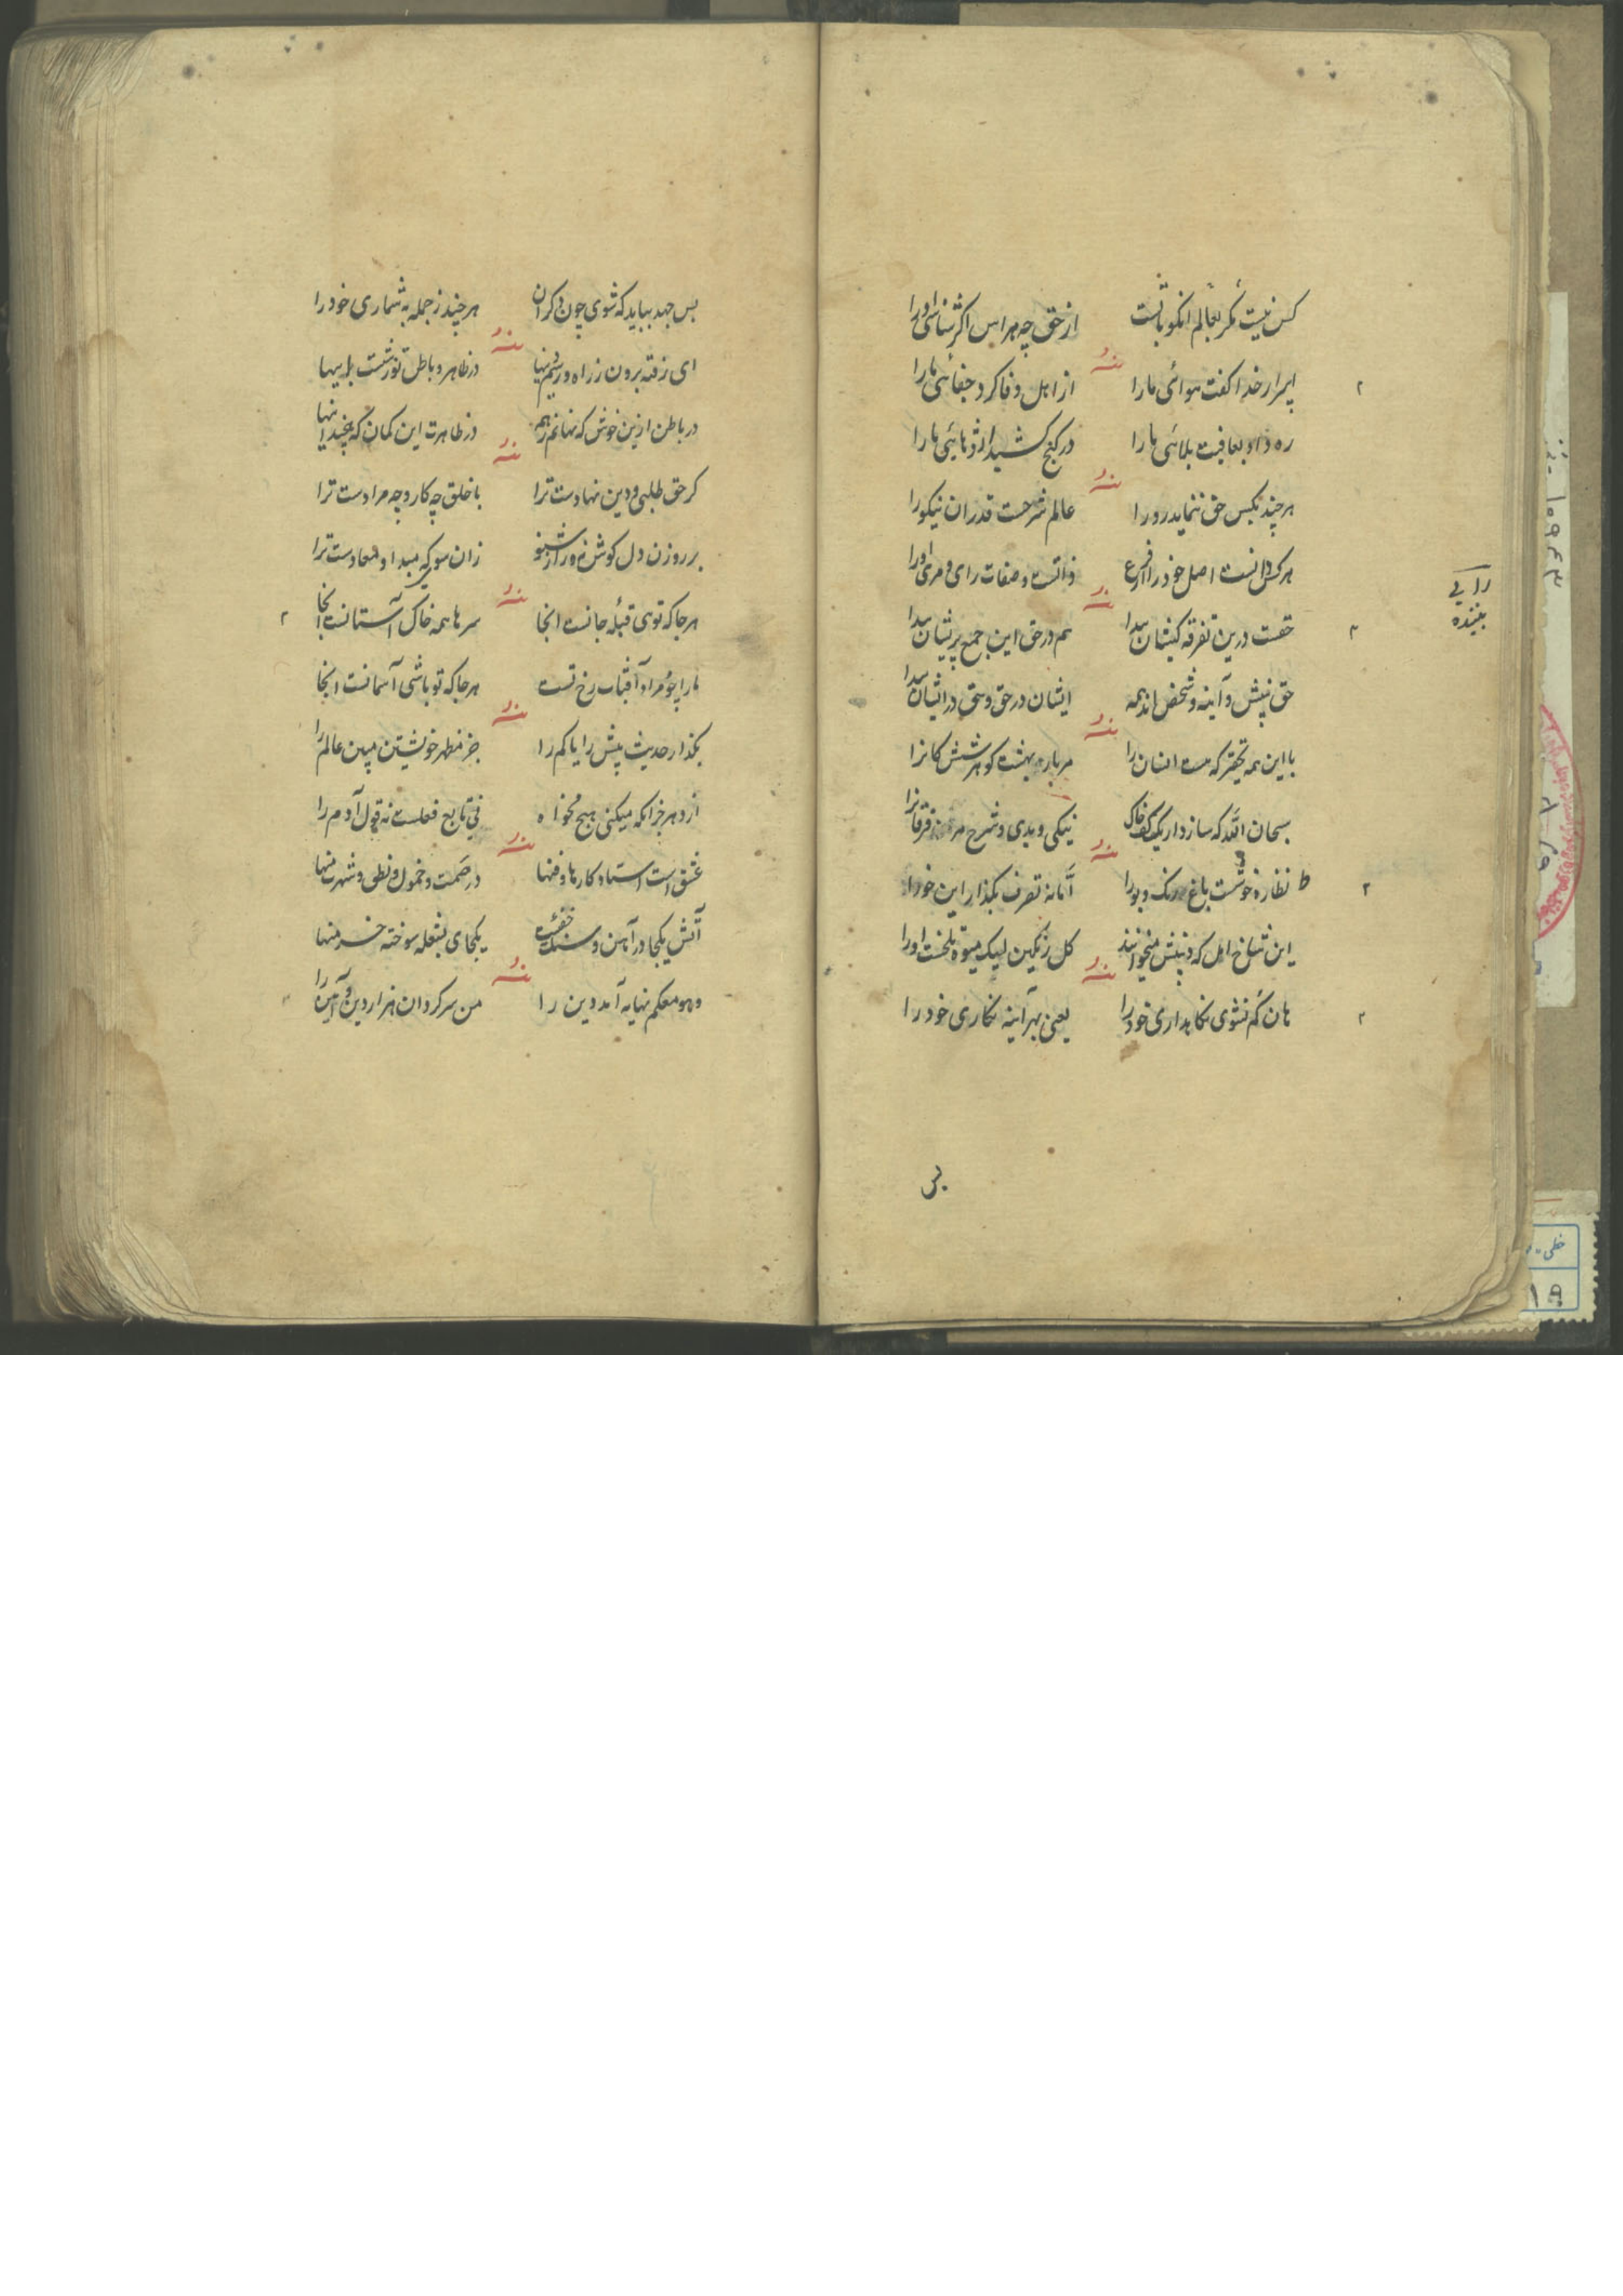 کس نیست مگر بعالم انکو با تست
از حق چه هراس اکر شناسی او را
اسرار خدا کفت هوائی ما را
از اهل وفا کرد جفائی ما را
ره داد بعافیت بلائی ما را
در کنج کشید اژدهائی ما را
هر چند بکس حق ننماید رو را
عالم شرحست قدر ان نیکو را
هر کس دانست اصل خود را از فرع
ذاتست و صفات رای و مرئی او را
رایی
بیننده
حقست درین تفرقه کیشان پیدا
هم در حق این جمع پریشان پیدا
حق بینش و آینه و شخص اند همه
ایشان در حق و حق در ایشان پیدا
با این همه تحقیر که هست انسان را
سبحان الله که سازد از یک کف خاک
نیکی و بدی و شرح مر فرقانرا
نظاره خوشست باغ رنک و بو را
آمانه تصرف بکذار این خو را
کل رنکین لیک میوه تلخست او را
هان کم نشوی نکاهداری خود را
یعنی بهر آینه نکاری خود را
بس
بس جهد بباید که شوی چون دکران
هر چند ز جمله به شماری خود را
ای رفته برون ز راه و رسم دینها
در ظاهر و باطن تو زشت
در باطن ازین خوش که نهانم ز همه
در ظاهرت این کمان که
کر حق طلبی و دین نهادست ترا
با خلق چه کار و چه مرادست ترا
بر روزن دل کوش نه و راز شنو
زان سو که مبدا و معادست ترا
هر جا که توئی قبلهٔ جانست انجا
سرها همه خاک آستانست انجا
ما را چو مراد آفتاب رخ تست
هر جا که تو باشی آسمانست انجا
بکذار حدیث بیش را یا کم را
جز مظهر خویشتن مبین عالم را
از دهر جز انکه میکنی هیچ مخواه
نی تابع فعلست نه قول آدم را
عشق است استاد کارها و فنها
در صمت و خمول و نطق و شهرت تنها
آتش یکجا در آهن و سنک خفته
یکجای بشعله سوخته خرمنها
وهو معکم نهایه آمد دین را
من سرکردان هزار دین و آئین را